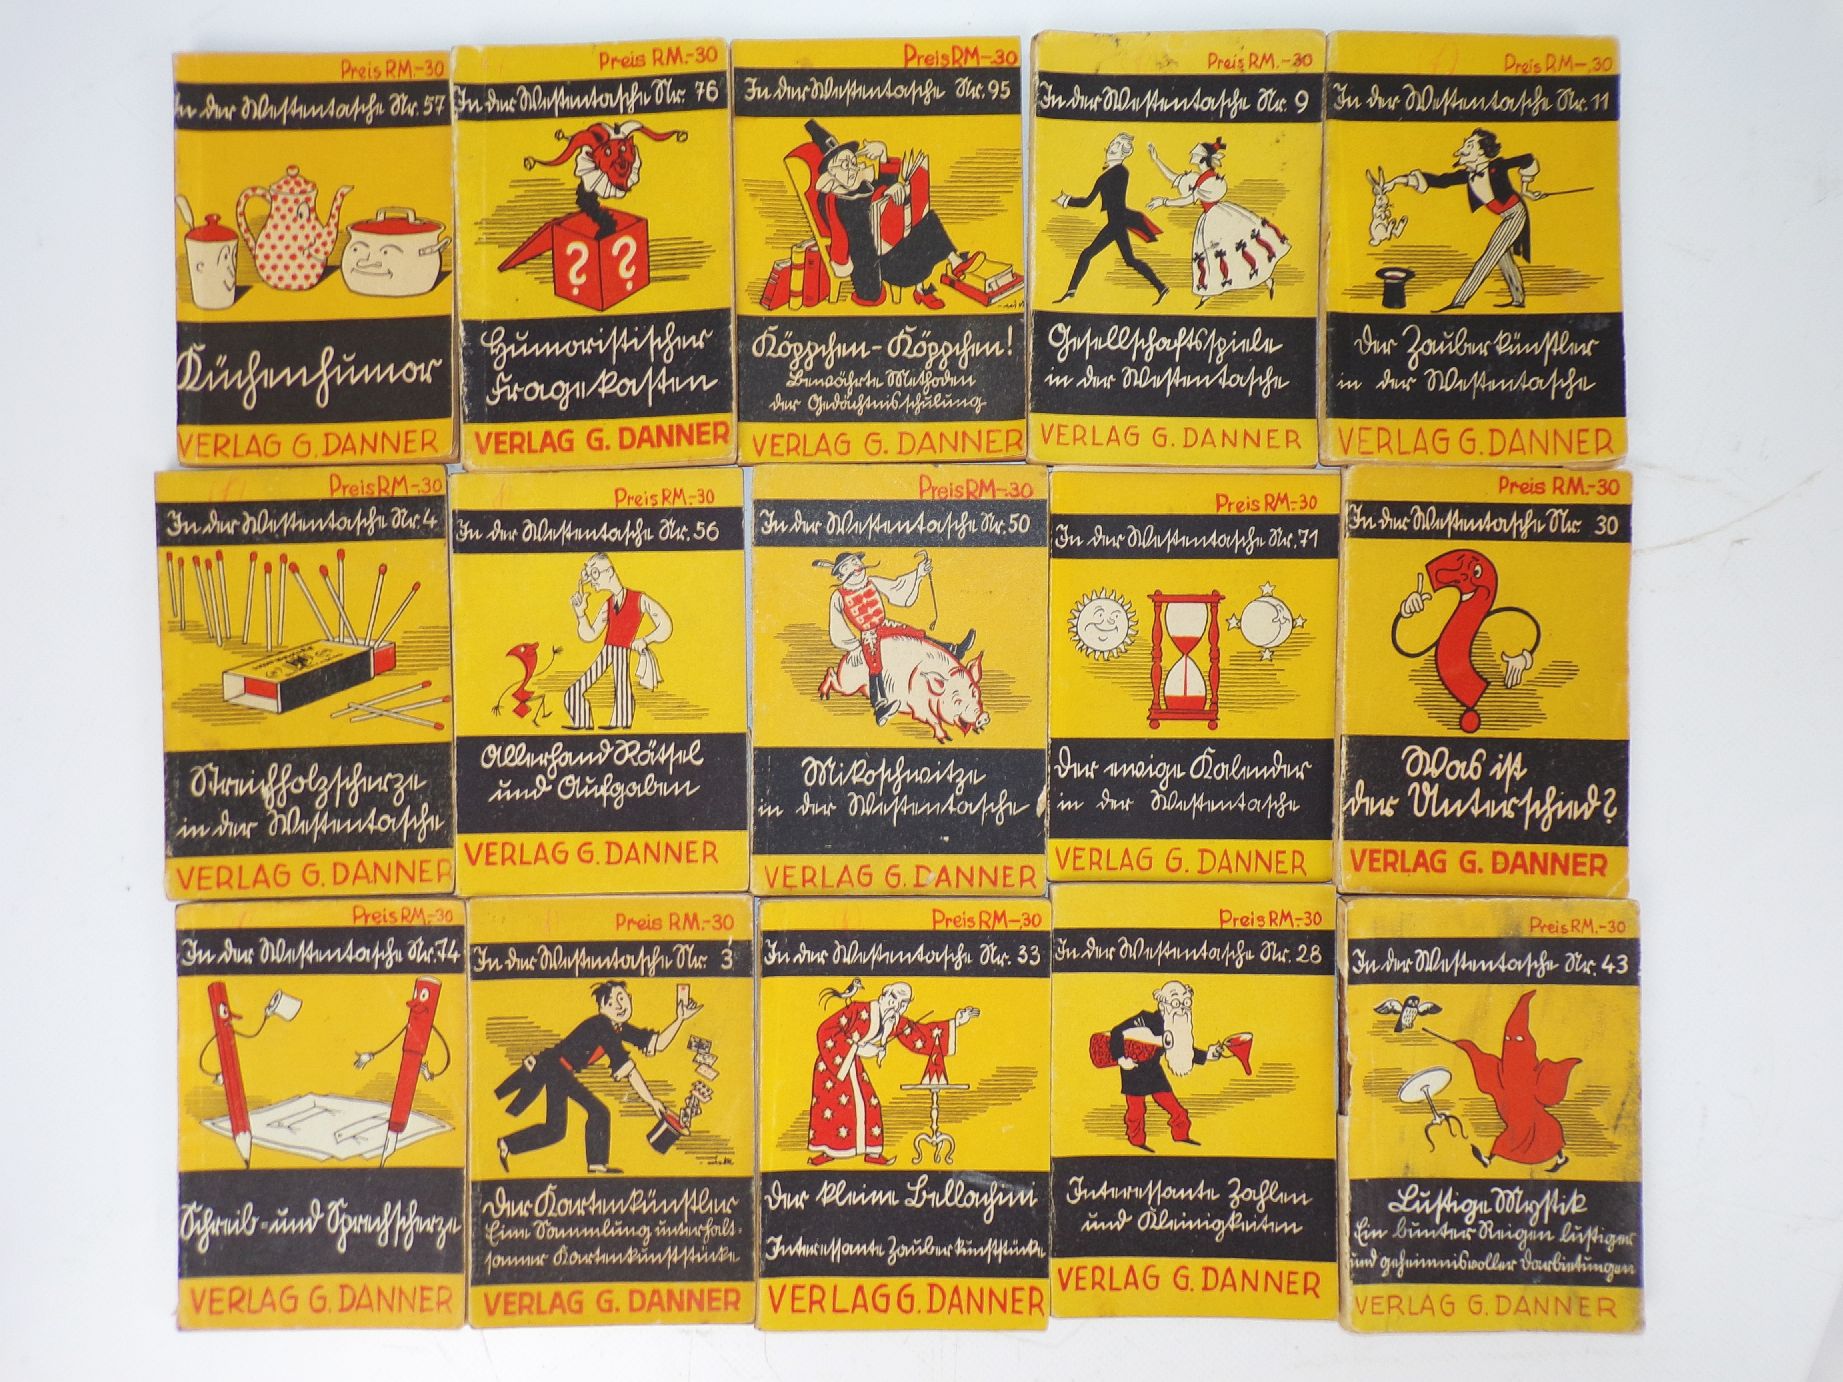 Preis RM.-30
In der Westentasche Nr. 57
Küchenhumor
VERLAG G. DANNER
Preis RM.-30
In der Westentasche Nr. 76
? ?
Humoristischer
Fragekasten
VERLAG G. DANNER
Preis RM-.30
In der Westentasche Nr. 95
Köppchen-Köppchen!
Bewährte Methoden
der Gedächtnisschulung
VERLAG G. DANNER
Preis RM.-30
In der Westentasche Nr. 9
Gesellschaftsspiele
in der Westentasche
VERLAG G. DANNER
Preis RM-.30
In der Westentasche Nr. 11
Der Zauberkünstler
in der Westentasche
VERLAG G. DANNER
Preis RM-.30
In der Westentasche Nr. 4
Streichholzscherze
in der Westentasche
VERLAG G. DANNER
Preis RM.-30
In der Westentasche Nr. 56
Allerhand Rätsel
und Aufgaben
VERLAG G. DANNER
Preis RM-.30
In der Westentasche Nr. 50
Mikoschwitze
in der Westentasche
VERLAG G. DANNER
Preis RM.-30
In der Westentasche Nr. 71
Der ewige Kalender
in der Westentasche
VERLAG G. DANNER
Preis RM.-30
In der Westentasche Nr. 30
Was ist
der Unterschied?
VERLAG G. DANNER
Preis RM.-30
In der Westentasche Nr. 74
Schreib- und Sprechscherze
VERLAG G. DANNER
Preis RM.-30
In der Westentasche Nr. 3
Der Kartenkünstler
Eine Sammlung unterhalt-
samer Kartenkunststücke
VERLAG G. DANNER
Preis RM-.30
In der Westentasche Nr. 33
Der kleine Bellachini
Interessante Zauberkunststücke
VERLAG G. DANNER
Preis RM.-30
In der Westentasche Nr. 28
Interessante Zahlen
und Kleinigkeiten
VERLAG G. DANNER
Preis RM.-30
In der Westentasche Nr. 43
Lustige Mystik
Ein bunter Reigen lustiger
und geheimnisvoller Darbietungen
VERLAG G. DANNER